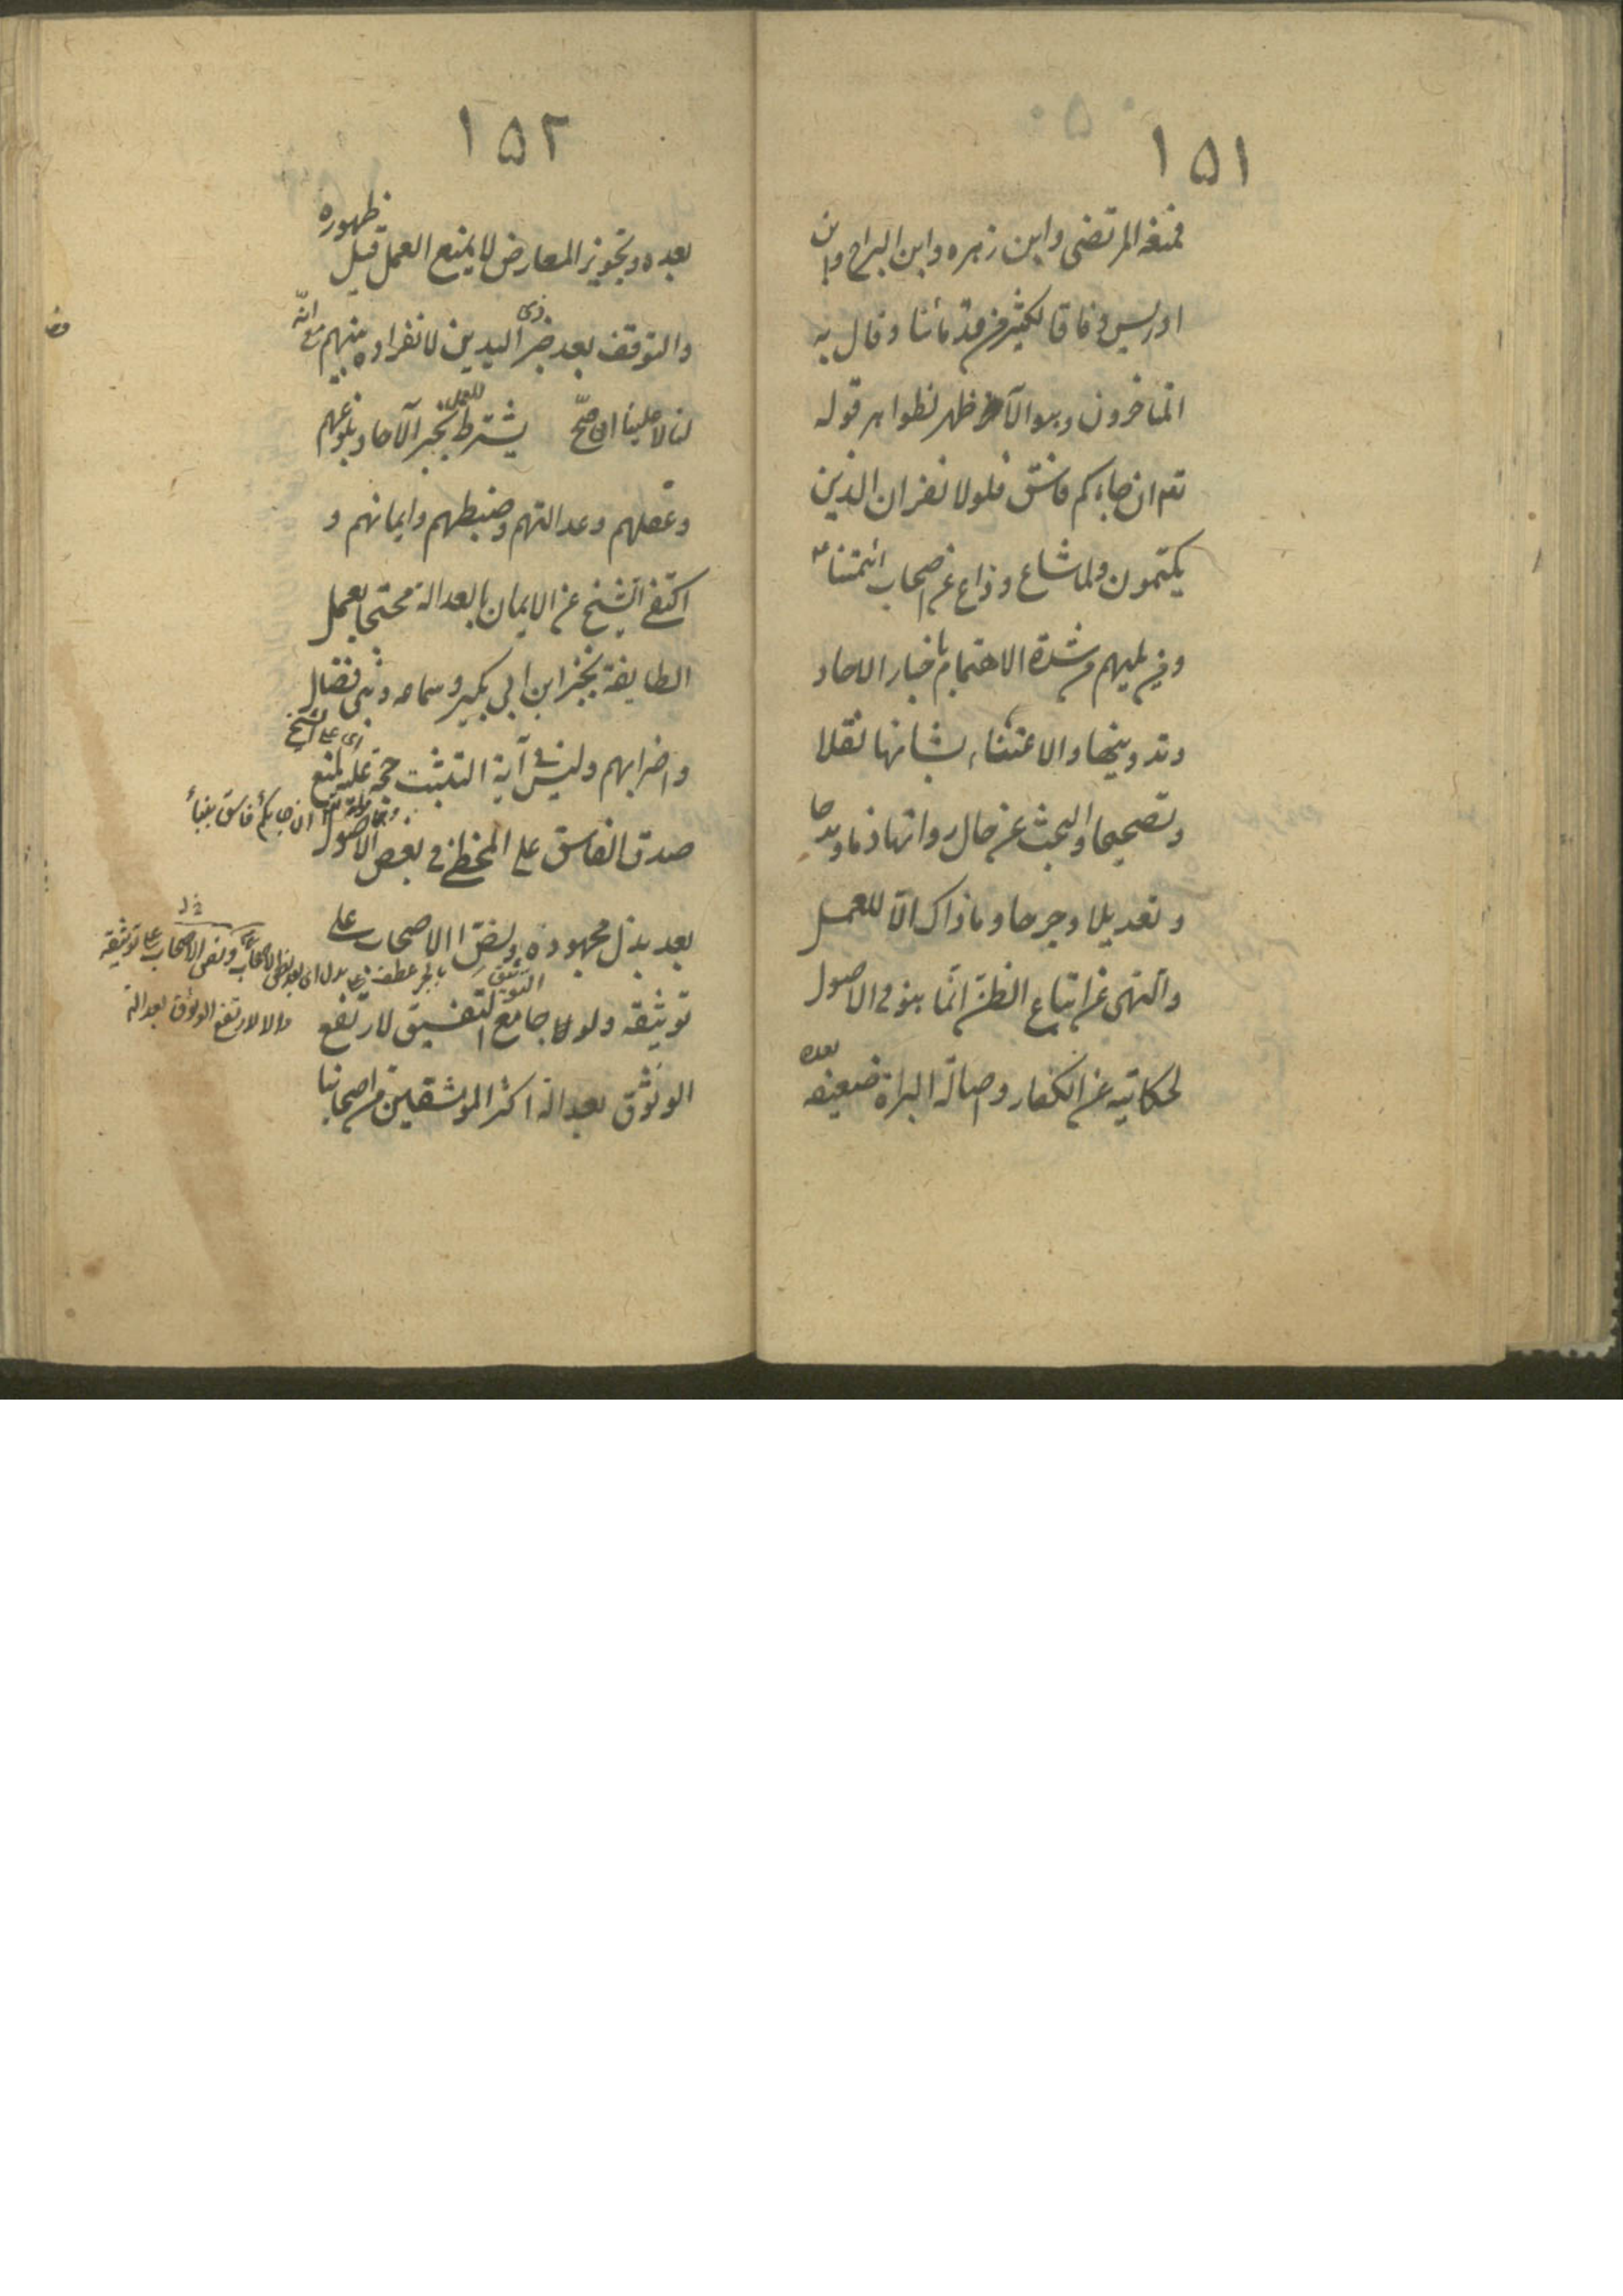 ١٥١
فمنعه المرتضى وابن زهره وابن البراج وابن
ادريس وفاقا لكثير من قدمائنا وقال به
المتاخرون وهو الاظهر لظواهر قوله
تعم ان جاءكم فاسق فلولا نفر ان الذين
يكتمون ولما شاع وذاع عن اصحاب ائمتنا ع
ومن يليهم من شدة الاهتمام باخبار الاحاد
وتدوينها والاعتناء بشانها نقلا
وتصحيحا والبحث عن حال رواتها ذما ومدحا
وتعديلا وجرحا وما ذاك الا للعمل
والنهى عن اتباع الظن انما هو فى الاصول
لحكايته عن الكفار واصالة البراة ضعيفه
بعده
١٥٢
بعده وتجويز المعارض لا يمنع العمل قبل ظهوره
والتوقف بعد خبر ذى اليدين لانفراده منهم مع انه
لنا لا علينا ان صح يشترط للعمل بخبر الآحاد بلوغهم
وعقلهم وعدالتهم وضبطهم وايمانهم و
اكتفى الشيخ عن الايمان بالعدالة محتجا بعمل
الطايفة بخبر ابن ابى بكير وسماعه وبنى فضال
واضرابهم وليس فى آية التثبت حجة عليه لمنع
اى على الشيخ
صدق الفاسق على المخطئ فى بعض الاصول
ان جاءكم فاسق بنبأ
بعد بذل مجهوده ولنص الاصحاب على
توثيقه ولولا جامع التفسيق لارتفع
التوثيق
بالجر عطف على بذل اى بعد نص الاصحاب
ونص الاصحاب على توثيقه
والا لارتفع الوثوق بعدالة
الوثوق بعدالة اكثر الموثقين من اصحابنا